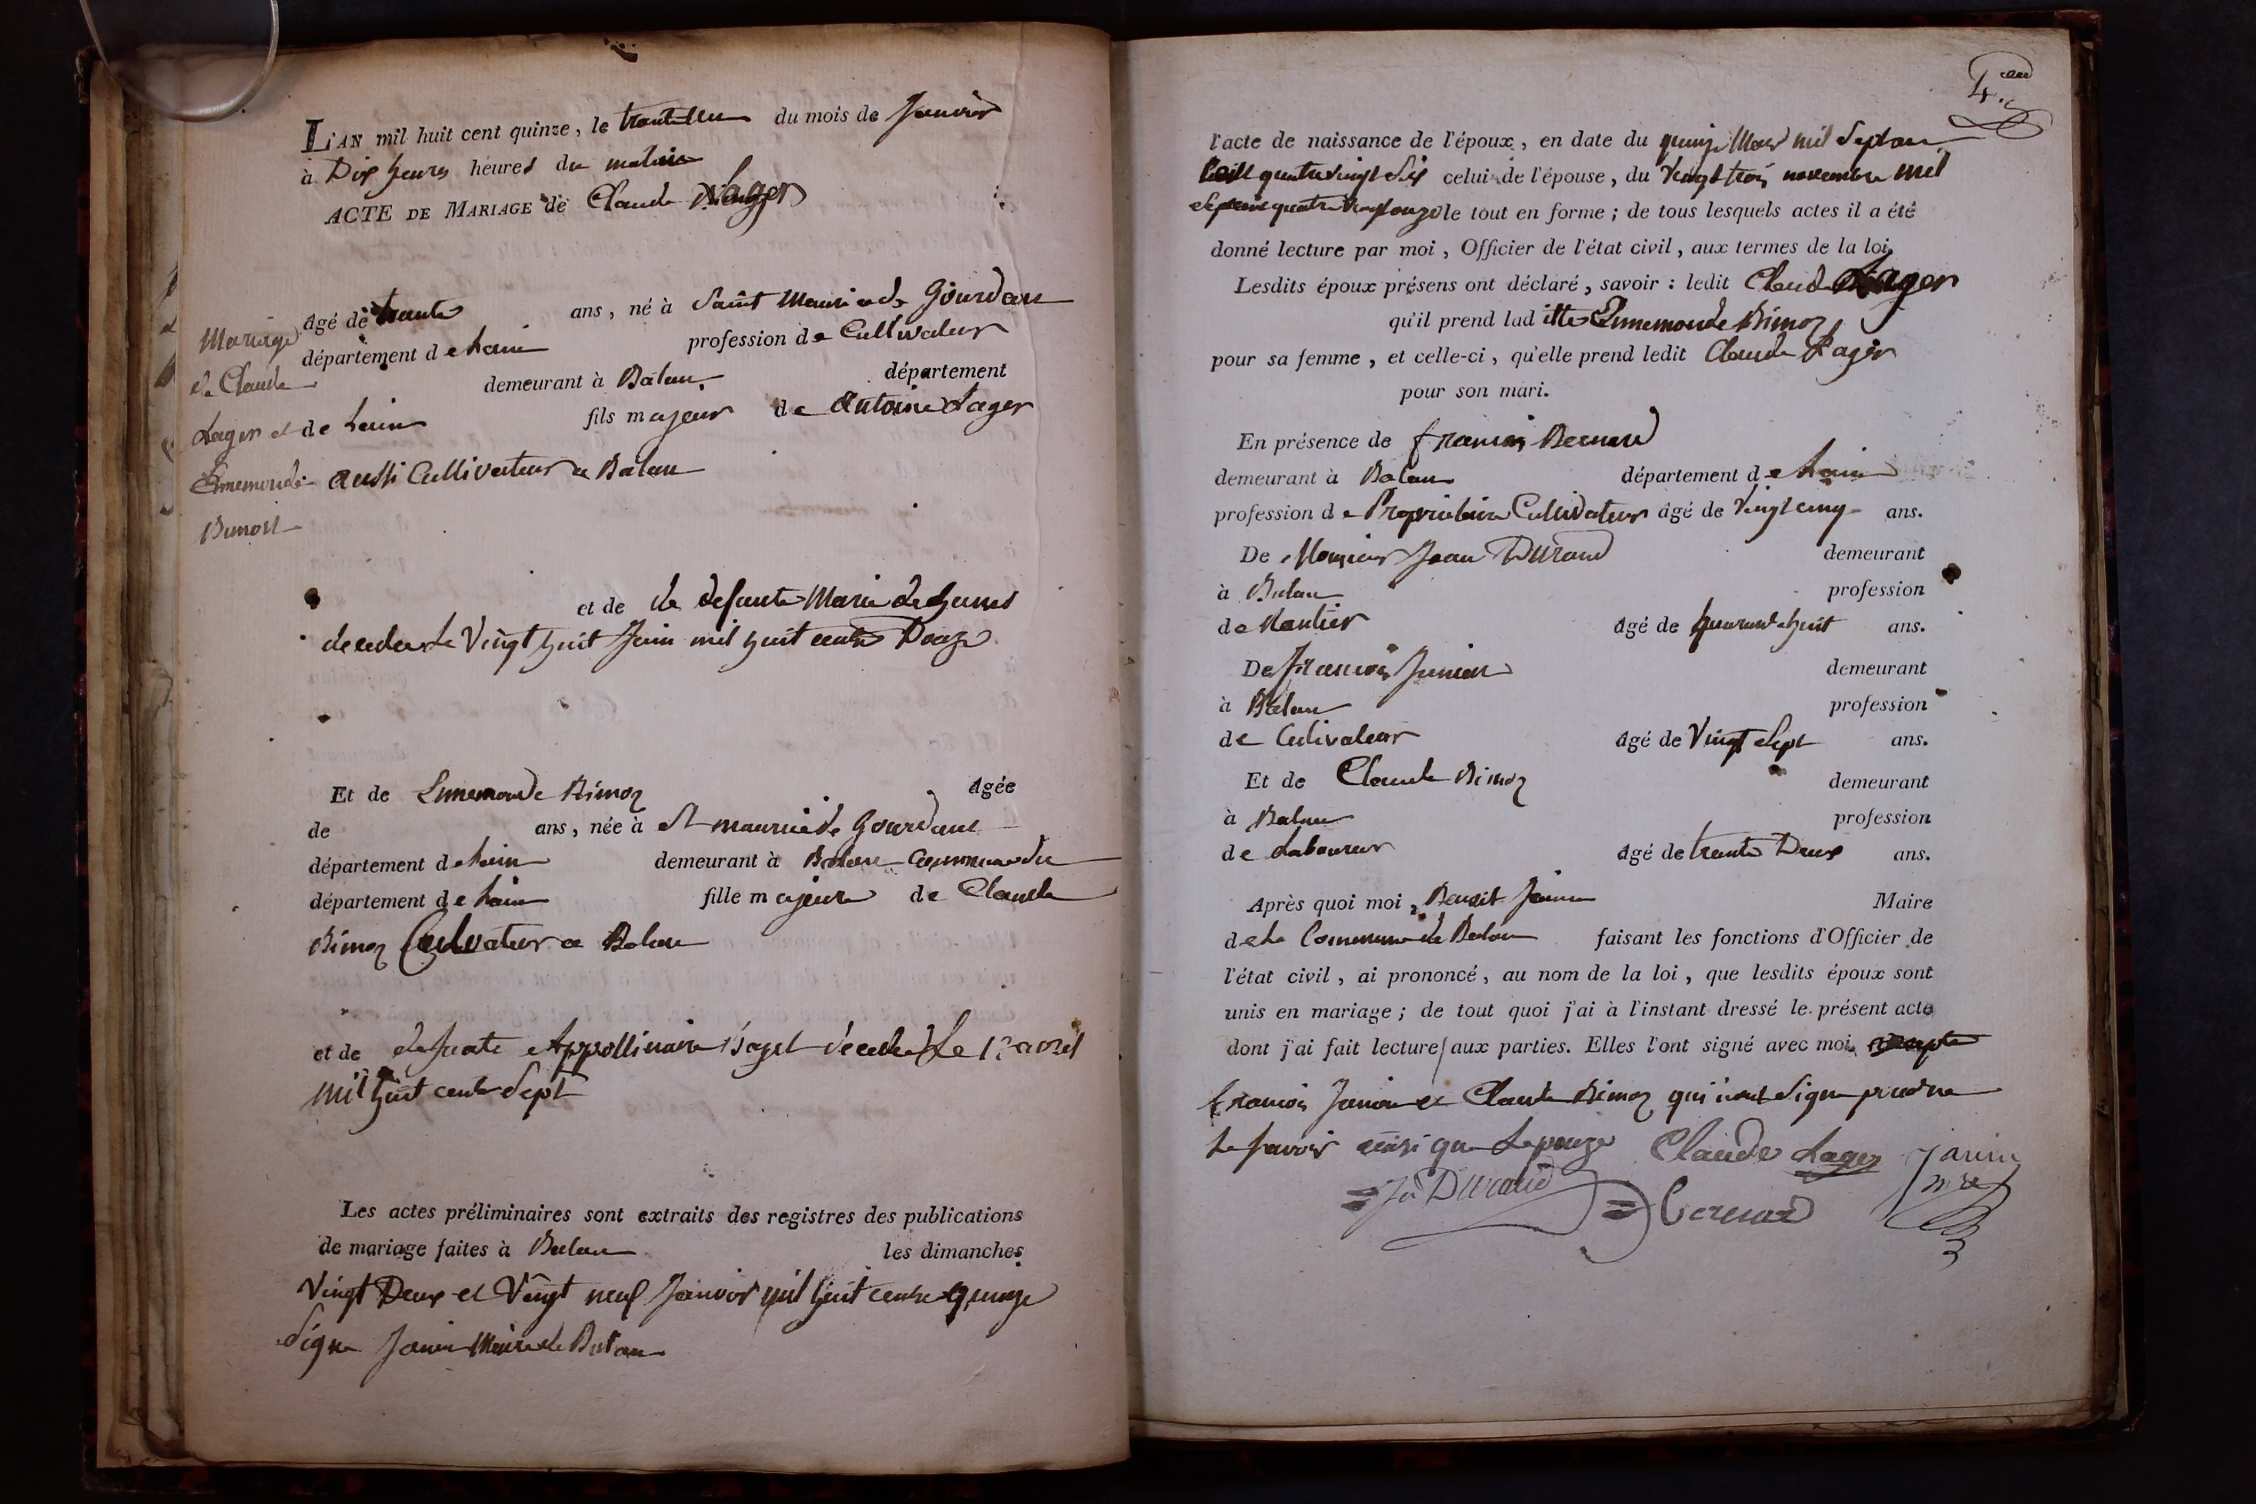 L'AN mil huit cent quinze, le trante un du mois de Janvier
à Dix heures heures du matin
ACTE DE MARIAGE de Claude Lager
âgé de trante ans, né à Saint Maurice de Gourdan
département de Lain profession de Cultivateur
demeurant à Balan département
de Lain fils majeur de Antoine Lager
aussi Cultivateur a Balan
Mariage
de Claude
Lager et
Ennemonde
Bimost
et de de defunte Marie
decedee Le Vingt huit Juin mil huit cents Douze
Et de Ennemonde Bimoz Agée
de ans, née à St maurice de Gourdans
département de Lain demeurant à Balan Commune du
département de Lain fille majeure de Claude
Bimoz Cultivateur a Balan
et de defunte Appollinaire décedé Le avril
mil huit cents Sept
Les actes préliminaires sont extraits des registres des publications
de mariage faites à Balan les dimanches
Vingt Deux et Vingt neuf Janvier mil huit cents quinze
Signe Janin Maire de Balan
l'acte de naissance de l'époux, en date du quinze Mars mil Sept
cent quatre vingt Six celui de l'épouse, du Vingt trois novembre mil
Sept cent quatre Vingt onze le tout en forme; de tous lesquels actes il a été
donné lecture par moi, Officier de l'état civil, aux termes de la loi.
Lesdits époux présens ont déclaré, savoir: ledit Claude Lager
qu'il prend lad itte Ennemonde Bimoz
pour sa femme, et celle-ci, qu'elle prend ledit Claude Lager
pour son mari.
En présence de francois Bernard
demeurant à Balan département de Lain
profession de Propriétaire Cultivateur âgé de Vingt cinq ans.
De Monsieur Jean Durand demeurant
à Balan profession
de Rantier âgé de quarante huit ans.
De francois Janion demeurant
à Balan profession
de Cultivateur âgé de Vingt Sept ans.
Et de Claude Bimoz demeurant
à Balan profession
de Laboureur âgé de trante Deux ans.
Après quoi moi, Benoit Janin Maire
de La Commune de Balan faisant les fonctions d'Officier de
l'état civil, ai prononcé, au nom de la loi, que lesdits époux sont
unis en mariage; de tout quoi j'ai à l'instant dressé le présent acte
dont j'ai fait lecture aux parties. Elles l'ont signé avec moi
francois Janion et Claude Bimoz qui nont Signe
Le Savoir ainsi que Lepouze Claude Lager Janin
mre
Jn Durand Bernard